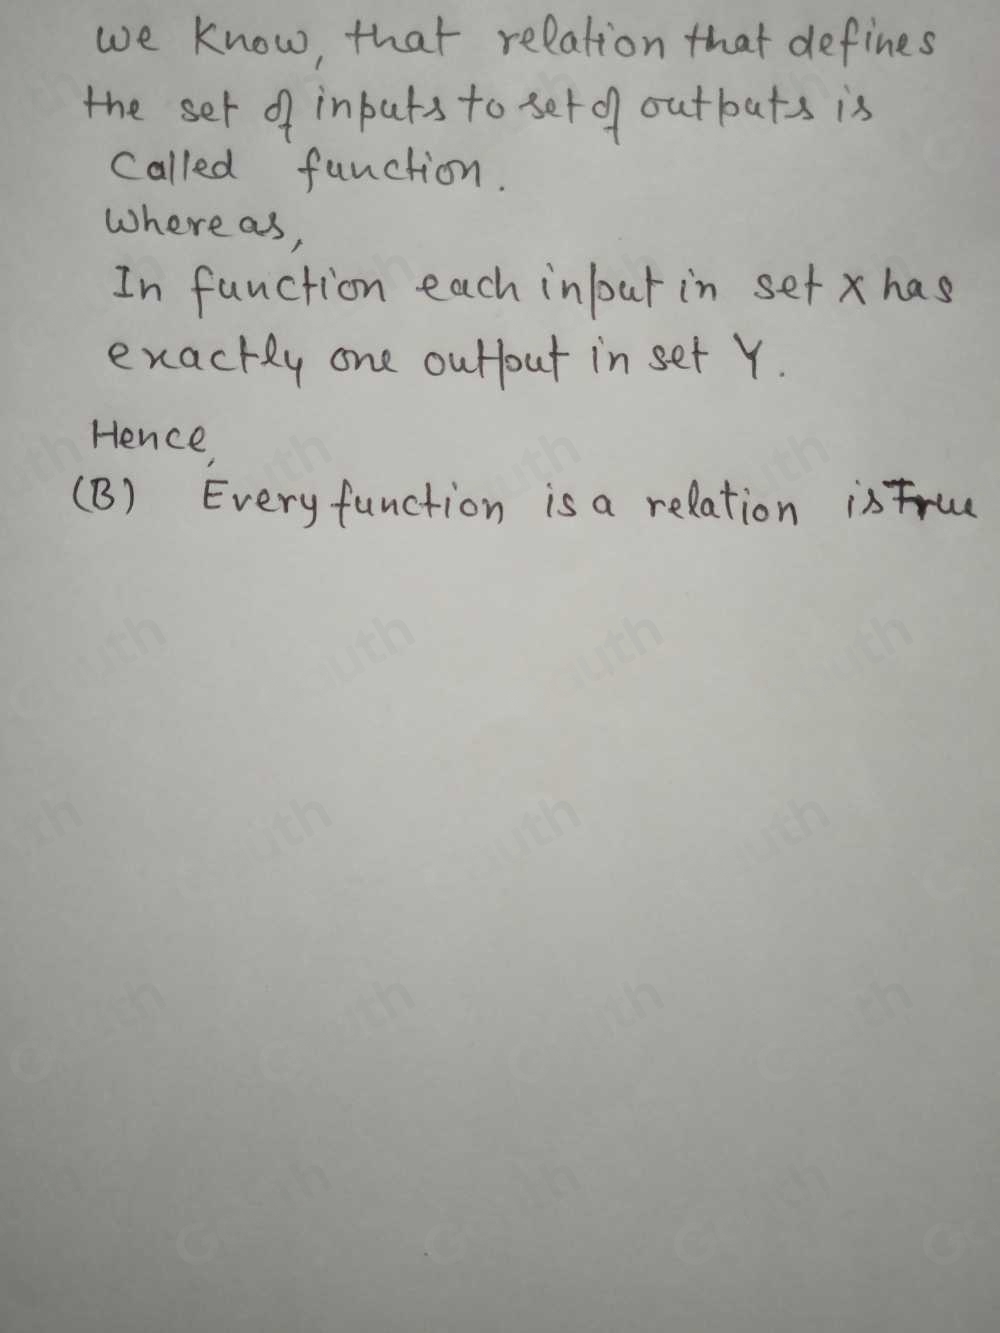 we know, that relation that defines
the set of inputs to set of outputs is
called function.
Whereas,
In function each input in set X has
exactly one output in set Y.
Hence,
(B) Every function is a relation is True